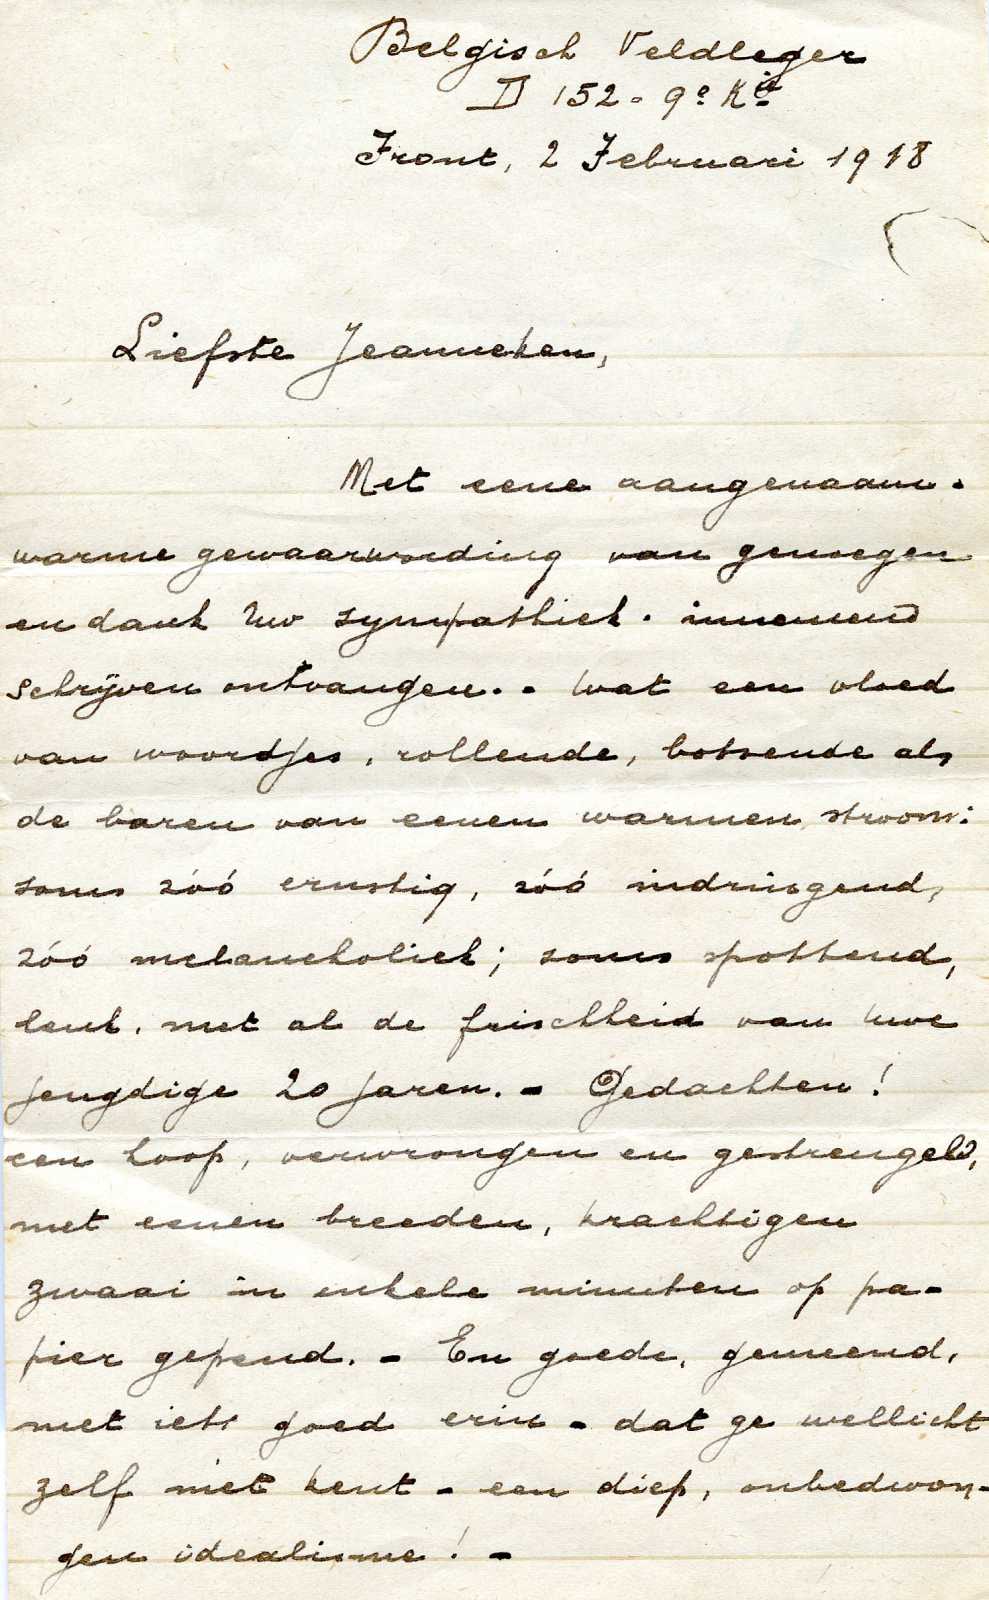 Belgisch Veldleger
D 152 - 9e Kie
Front, 2 Februari 1918
Liefste Jeanneken,
Met eene aangenaam-
warme gewaarwording van genoegen
en dank Uw sympathiek-innemend
schrijven ontvangen.- Wat een vloed
van woordjes, rollende, botsende als
de baren van eenen warmen stroom:
soms zóó ernstig, zóó indringend,
zóó melancholiek; soms spottend,
leuk, met al de frischheid van Uwe
jeugdige 20 jaren. - Gedachten!
een hoop, verwrongen en gestrengeld,
met eenen breeden, krachtigen
zwaai in enkele minuten op pa-
pier gepend. - En goede, gemeend,
met iets goed erin - dat ge wellicht
zelf niet kent - een diep, onbedwon-
gen idealisme! -